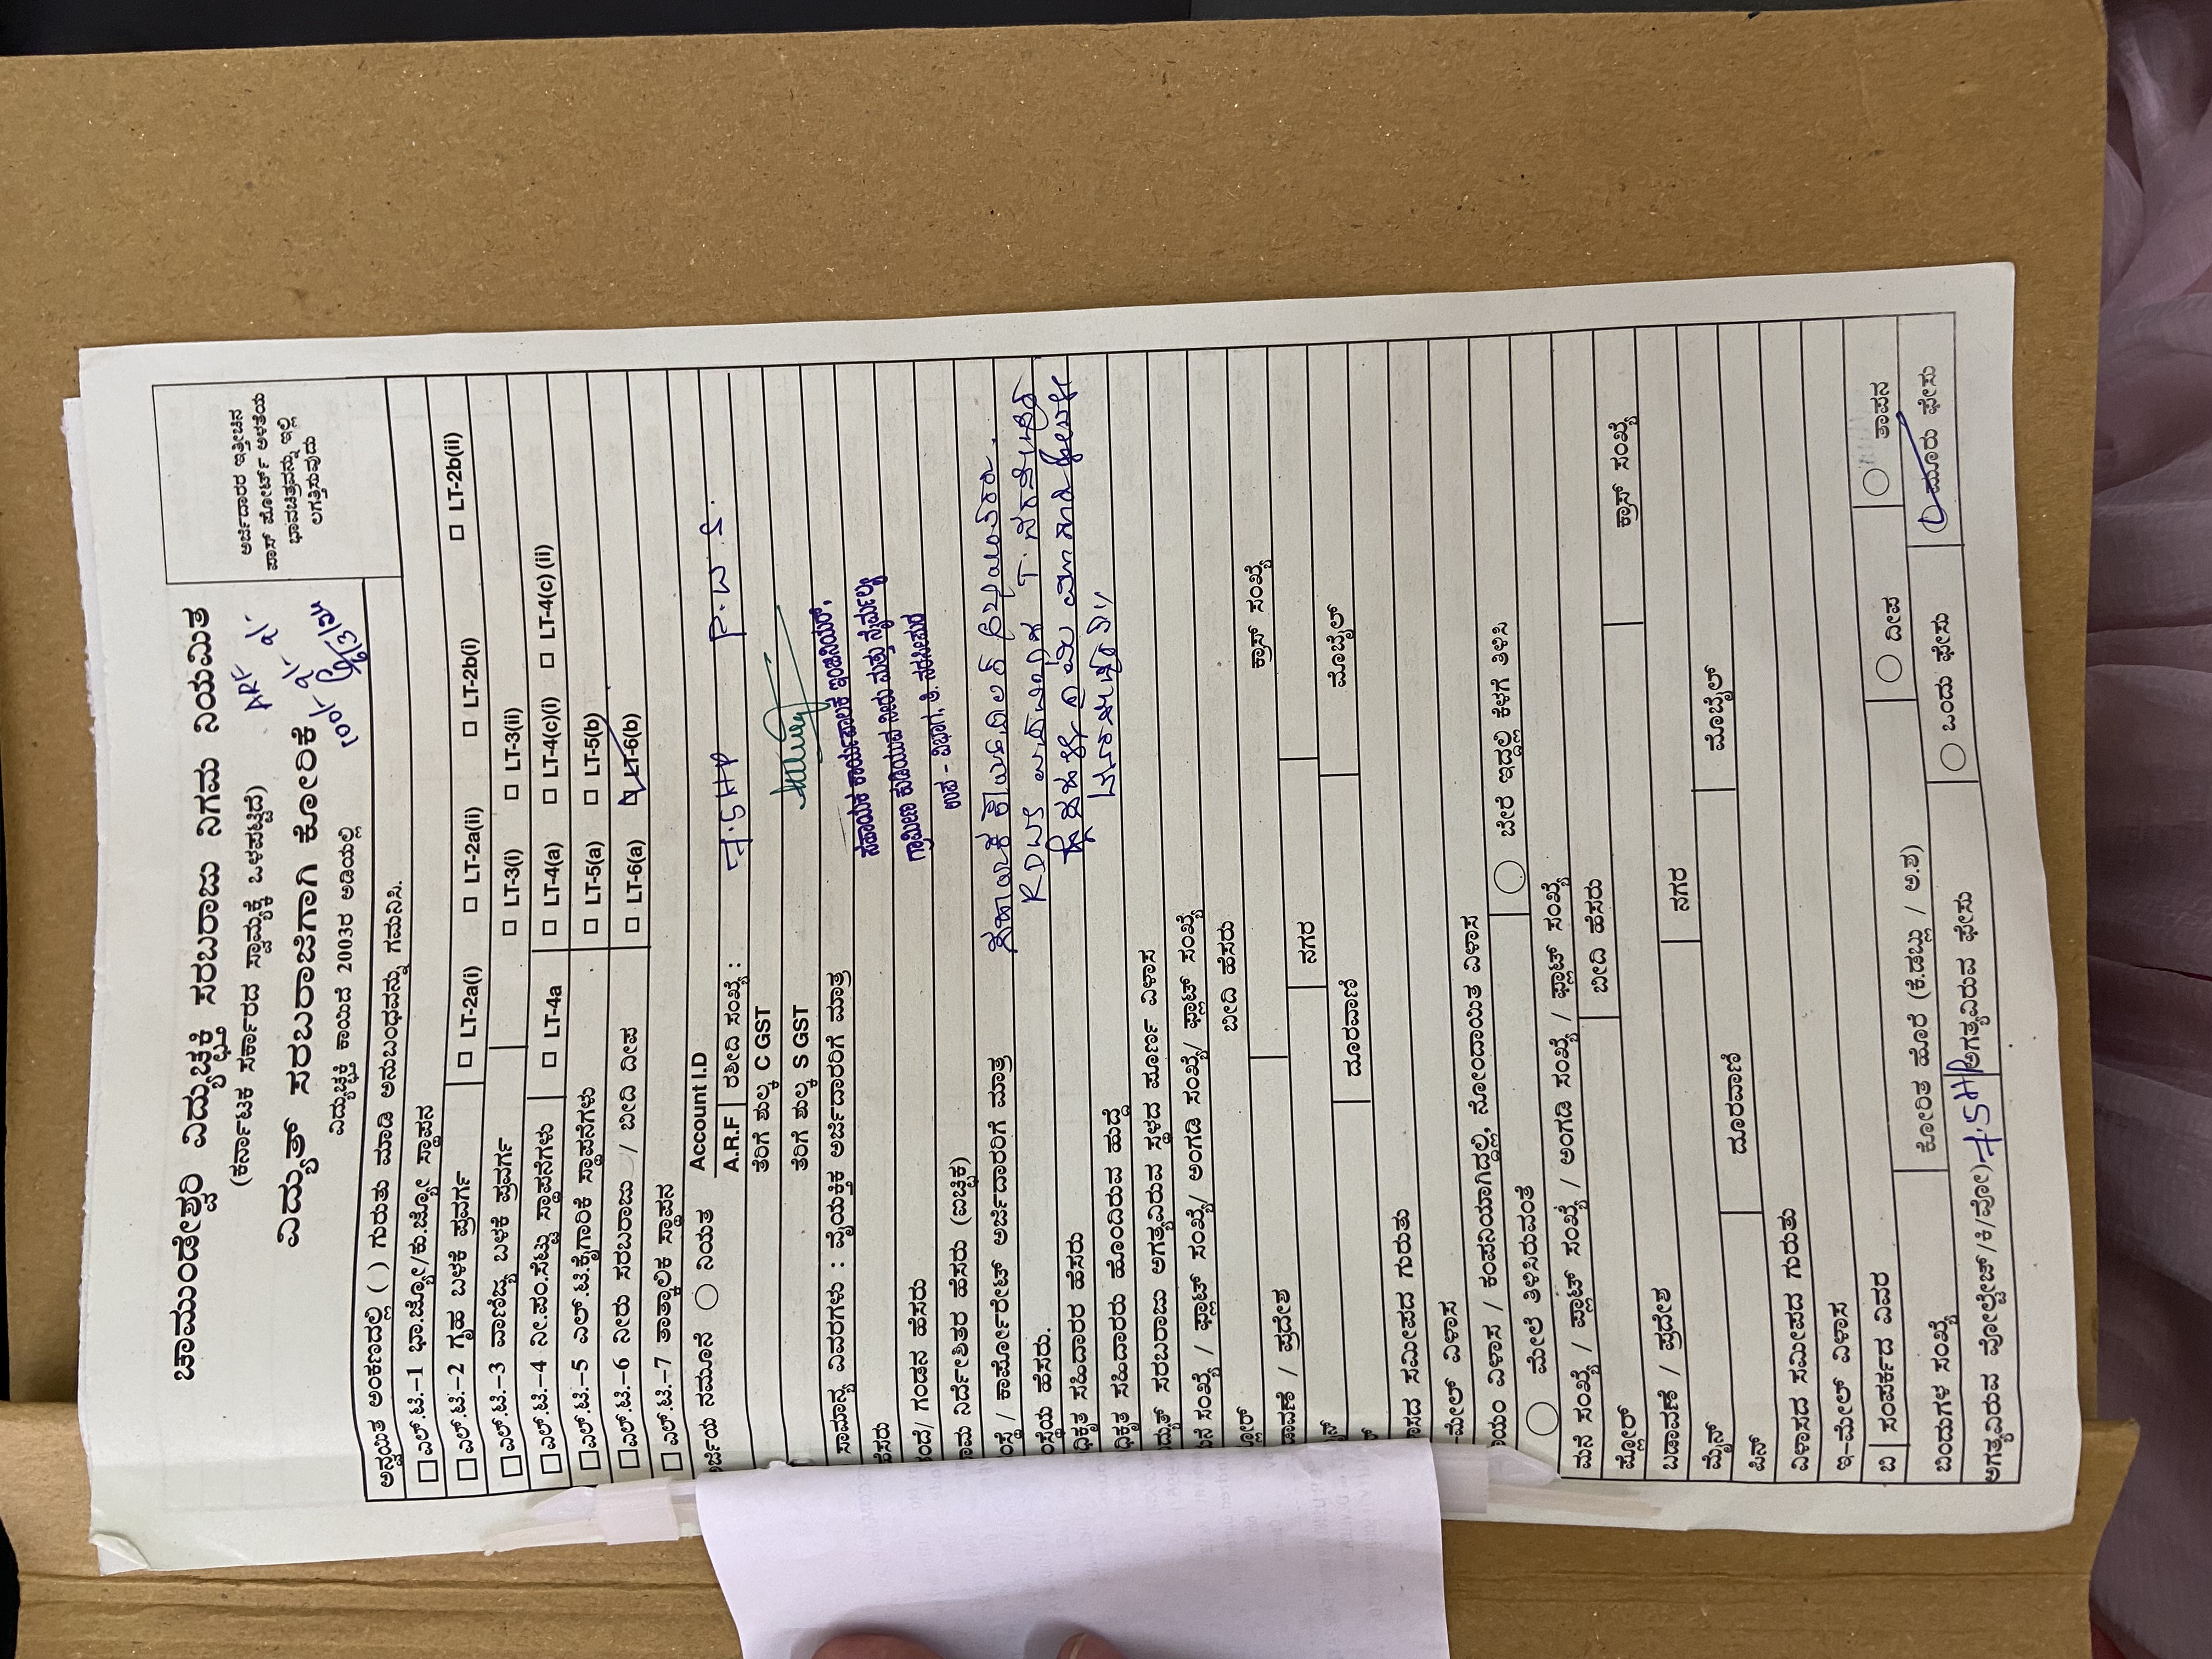 ಚಾಮುಂಡೇಶ್ವರಿ ವಿದ್ಯುಚ್ಛಕ್ತಿ ಸರಬರಾಜು ನಿಗಮ ನಿಯಮಿತ
(ಕರ್ನಾಟಕ ಸರ್ಕಾರದ ಸ್ವಾಮ್ಯಕ್ಕೆ ಒಳಪಟ್ಟಿದೆ)
ವಿದ್ಯುತ್ ಸರಬರಾಜಿಗಾಗಿ ಕೋರಿಕೆ
ವಿದ್ಯುಚ್ಛಕ್ತಿ ಕಾಯಿದೆ 2003ರ ಅಡಿಯಲ್ಲಿ
ARF
ಅರ್ಜಿದಾರರ ಇತ್ತೀಚಿನ
ಪಾಸ್ ಪೋರ್ಟ್ ಅಳತೆಯ
ಭಾವಚಿತ್ರವನ್ನು ಇಲ್ಲಿ
ಲಗತ್ತಿಸುವುದು
ಅನ್ವಯಿತ ಅಂಕಣದಲ್ಲಿ ( ) ಗುರುತು ಮಾಡಿ ಅನುಬಂಧವನ್ನು ಗಮನಿಸಿ.
ಎಲ್.ಟಿ.-1 ಭಾ.ಜ್ಯೋ/ಕು.ಜ್ಯೋ ಸ್ಥಾವನ
ಎಲ್.ಟಿ.-2 ಗೃಹ ಬಳಕೆ ಪ್ರವರ್ಗ LT-2a(i) LT-2a(ii) LT-2b(i) LT-2b(ii)
ಎಲ್.ಟಿ.-3 ವಾಣಿಜ್ಯ ಬಳಕೆ ಪ್ರವರ್ಗ LT-3(i) LT-3(ii)
ಎಲ್.ಟಿ.-4 ನೀ.ಪಂ.ಸೆಟ್ಟು ಸ್ಥಾಪನೆಗಳು LT-4a LT-4(a) LT-4(c)(i) LT-4(c) (ii)
ಎಲ್.ಟಿ.-5 ಎಲ್.ಟಿ.ಕೈಗಾರಿಕೆ ಸ್ಥಾಪನೆಗಳು LT-5(a) LT-5(b)
ಎಲ್.ಟಿ.-6 ನೀರು ಸರಬರಾಜು / ಬೀದಿ ದೀಪ LT-6(a) LT-6(b)
ಎಲ್.ಟಿ.-7 ತಾತ್ಕಾಲಿಕ ಸ್ಥಾಪನ
ರ್ಜಿಯ ನಮೂನೆ ನಿಯತ Account I.D
A.R.F ರಶೀದಿ ಸಂಖ್ಯೆ : 7.5HP P.W.S.
ತೆರಿಗೆ ಶುಲ್ಕ C GST
ತೆರಿಗೆ ಶುಲ್ಕ S GST
ಸಾಮಾನ್ಯ ವಿವರಗಳು : ವೈಯಕ್ತಿಕ ಅರ್ಜಿದಾರರಿಗೆ ಮಾತ್ರ
ಸಹಾಯಕ ಕಾರ್ಯಪಾಲಕ ಇಂಜಿನಿಯರ್,
ಹೆಸರು ಗ್ರಾಮೀಣ ಕುಡಿಯುವ ನೀರು ಮತ್ತು ನೈರ್ಮಲ್ಯ
ಂದೆ/ ಗಂಡನ ಹೆಸರು ಉಪ - ವಿಭಾಗ, ತಿ. ನರಸೀಪುರ
ನಾಮ ನಿರ್ದೇಶಿತರ ಹೆಸರು (ಐಚ್ಛಿಕ)
ಂಸ್ಥೆ / ಕಾರ್ಪೋರೇಟ್ ಅರ್ಜಿದಾರರಿಗೆ ಮಾತ್ರ
ಂಸ್ಥೆಯ ಹೆಸರು. RDWS T. ನರಸೀಪುರ
ಧಿಕೃತ ಸಹಿದಾರರ ಹೆಸರು
ಧಿಕೃತ ಸಹಿದಾರರು ಹೊಂದಿರುವ ಹುದ್ದೆ
ದ್ಯುತ್ ಸರಬರಾಜು ಅಗತ್ಯವಿರುವ ಸ್ಥಳದ ಪೂರ್ಣ ವಿಳಾಸ
ನೆ ಸಂಖ್ಯೆ / ಪ್ಲಾಟ್ ಸಂಖ್ಯೆ/ ಅಂಗಡಿ ಸಂಖ್ಯೆ/ ಫ್ಲಾಟ್ ಸಂಖ್ಯೆ
ಫ್ಲೋರ್ ಬೀದಿ ಹೆಸರು ಕ್ರಾಸ್ ಸಂಖ್ಯೆ
ಡಾವಣೆ / ಪ್ರದೇಶ ನಗರ
ದೂರವಾಣಿ ಮೊಬೈಲ್
ಾಸದ ಸಮೀಪದ ಗುರುತು
-ಮೇಲ್ ವಿಳಾಸ
ಾಯಂ ವಿಳಾಸ / ಕಂಪನಿಯಾಗಿದ್ದಲ್ಲಿ, ನೋಂದಾಯಿತ ವಿಳಾಸ
ಮೇಲೆ ತಿಳಿಸಿರುವಂತೆ ಬೇರೆ ಇದ್ದಲ್ಲಿ ಕೆಳಗೆ ತಿಳಿಸಿ
ಮನೆ ಸಂಖ್ಯೆ / ಪ್ಲಾಟ್ ಸಂಖ್ಯೆ / ಅಂಗಡಿ ಸಂಖ್ಯೆ / ಫ್ಲಾಟ್ ಸಂಖ್ಯೆ
ಫ್ಲೋರ್ ಬೀದಿ ಹೆಸರು ಕ್ರಾಸ್ ಸಂಖ್ಯೆ
ಬಡಾವಣೆ / ಪ್ರದೇಶ ನಗರ
ಮೈನ್ ದೂರವಾಣಿ ಮೊಬೈಲ್
ಪಿನ್
ವಿಳಾಸದ ಸಮೀಪದ ಗುರುತು
ಇ-ಮೇಲ್ ವಿಳಾಸ
ಬಿ ಸಂಪರ್ಕದ ವಿವರ ದೀಪ ತಾಪನ
ಬಿಂದುಗಳ ಸಂಖ್ಯೆ ಕೋರಿತ ಹೊರೆ (ಕೆ.ಡಬ್ಲು / ಅ.ಶ)
ಅಗತ್ಯವಿರುವ ವೋಲ್ಟೇಜ್/ಕಿ/ವೋ) 7.5HP ಅಗತ್ಯವಿರುವ ಫೇಸು ಒಂದು ಫೇಸು ಮೂರು ಫೇಸು